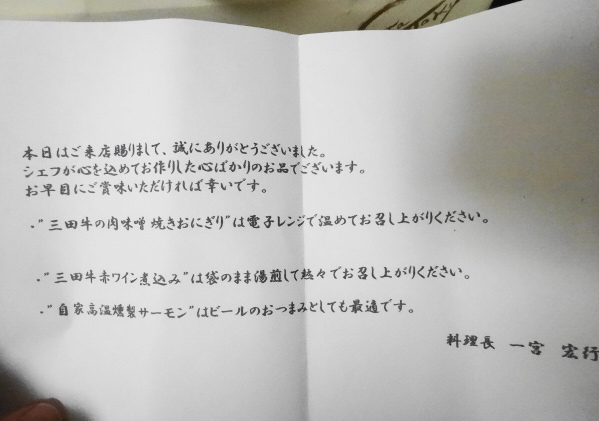 本日はご来店賜りまして、誠にありがとうございました。
シェフが心を込めてお作りした心ばかりのお品でございます。
お早目にご賞味いただければ幸いです。
・"三田牛の肉味噌 焼きおにぎり"は電子レンジで温めてお召し上がりください。
・"三田牛赤ワイン煮込み"は袋のまま湯煎して熱々でお召し上がりください。
・"自家高温燻製サーモン"はビールのおつまみとしても最適です。
料理長 一宮 宏行